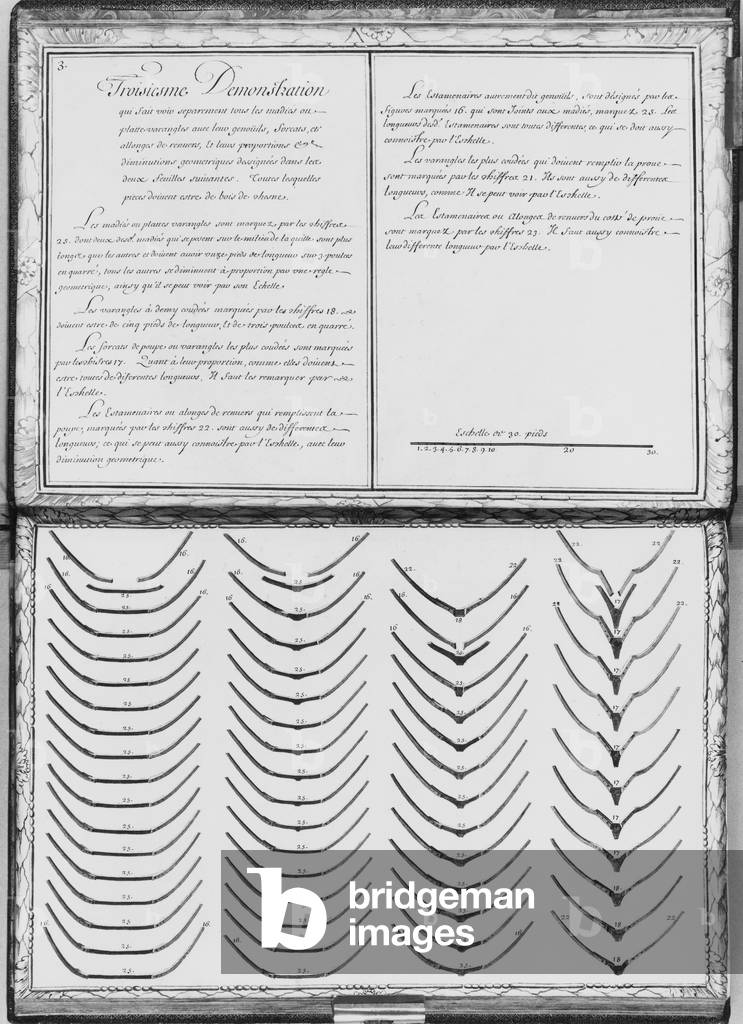 3.
Troisiesme Demonstration
qui fait voir separement tous les madies ou
platte varangles avec leur genoüils, forcats, et
allonges de renvers, Et leurs proportions &
diminutions geometriques dessignées dans les
deux feuilles suivantes. Toutes lesquelles
pieces doivent estre de bois de chesne.
Les madies ou plattes varangles sont marquez par les chiffres
25. dont deux desd. madies qui se posent sur le milieu de la quille sont plus
longs que les autres et doivent avoir unze pieds de longueur sur 3. pouces
en quarré, tous les autres se diminuent à proportion par une regle
geometrique, ainsy qu'il se peut voir par son Echelle.
Les varangles à demy coudées marquées par les chiffres 18.
doivent estre de cinq pieds de longueur, Et de trois pouces en quarré.
Les forcats de poupe ou varangles les plus coudées sont marqués
par les chifres 17. Quant à leur proportion, comme elles doivent
estre toutes de diferentes longueurs, Il faut les remarquer par
l'Eschelle.
Les Estamenaires ou alonges de renvers qui remplissent la
poupe, marquées par les chiffres 22. sont aussy de differentes
longueurs; ce qui se peut aussy connoistre par l'Eschelle, avec leur
diminution geometrique.
Les Estamenaires autrement dit genoüils, sont désignés par les
figures marqués 16. qui sont Joints aux madies, marquez 25. Les
longueurs desd. Estamenaires sont toutes differentes, ce qui se doit aussy
connoistre par l'Eschelle.
Les varangles les plus coudées qui doivent remplir la proue
sont marquées par les chiffres 21. Ils sont aussy de differentes
longueurs, comme Il se peut voir par l'Eschelle.
Les Estamenaires ou Alonges de renvers du costé de proue
sont marquez par les chiffres 23. Il faut aussy connoistre
leur differente longueur par l'Eschelle.
Eschelle de 30. pieds
1. 2. 3. 4. 5. 6. 7. 8. 9. 10 20 30.
16. 16. 16. 16. 22. 22. 22. 22.
25. 25. 18 17
25. 25. 25. 17
25. 25. 25. 17
25. 25. 25. 17
25. 25. 25. 17
25. 25. 25. 18
16. 25. 16. 16. 25. 16. 22. 18 22.
bridgeman
images